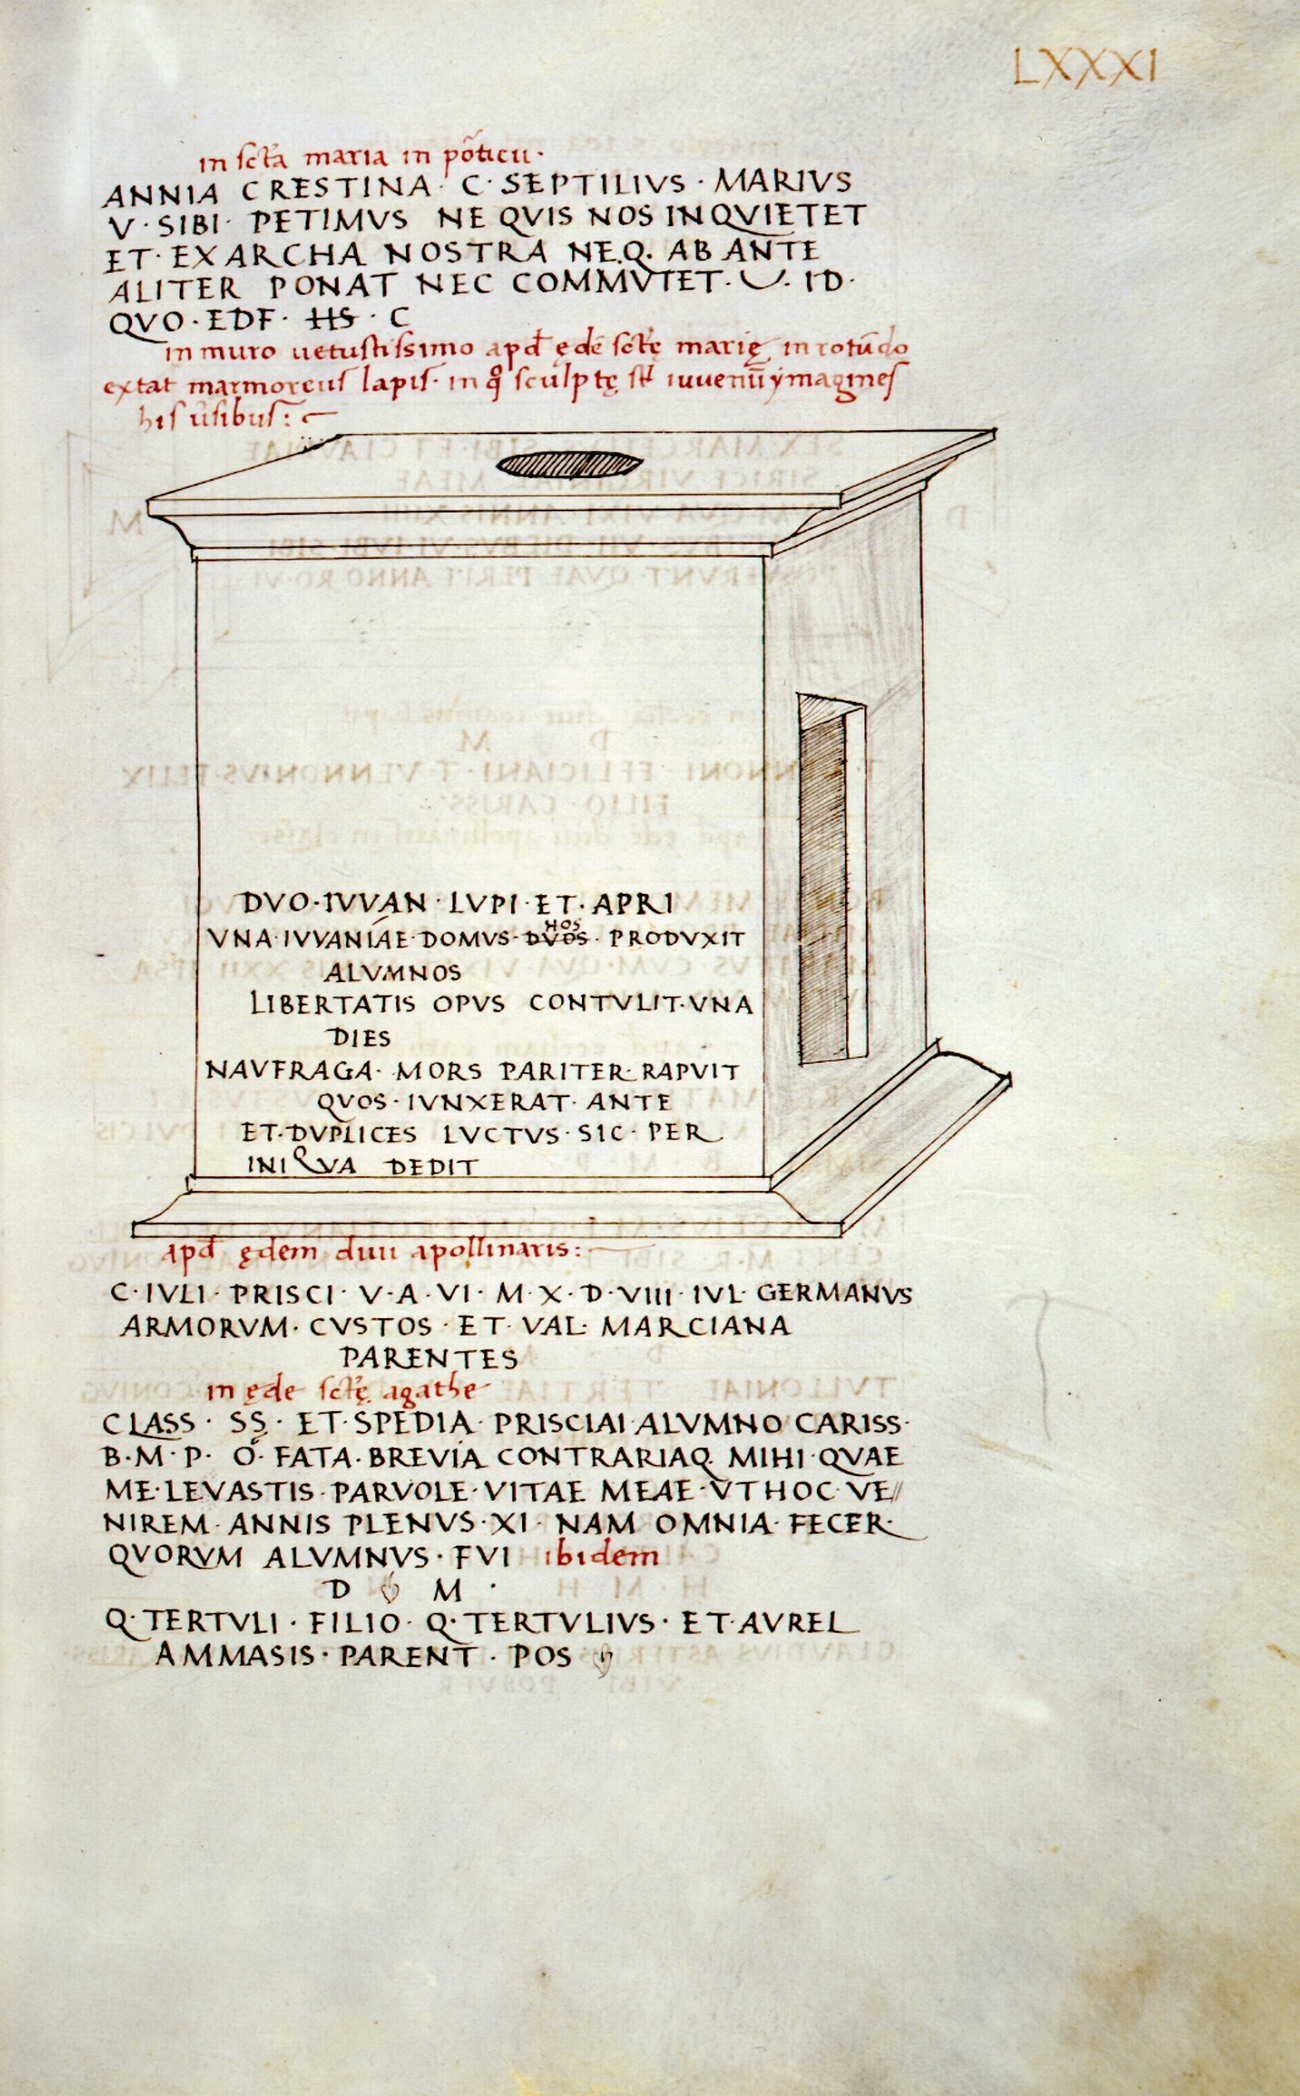 LXXXI
in scta maria in pōticu·
ANNIA CRESTINA · C · SEPTILIVS · MARIVS
V · SIBI · PETIMVS NE QVIS NOS INQVIETET
ET · EXARCHA NOSTRA NE.Q. AB ANTE
ALITER PONAT NEC COMMVTET · V · ID ·
QVO · EDF · HS · C
in muro uetustissimo apd ędē sctę marię in rotūdo
extat marmoreus lapis · in q sculptę st iuuenū ymagines
his uersibus :
DVO · IVVAN · LVPI · ET · APRI
VNA · IVVANIAE · DOMVS · DVOS HOS · PRODVXIT
ALVMNOS
LIBERTATIS OPVS CONTVLIT · VNA
DIES
NAVFRAGA · MORS PARITER · RAPVIT
QVOS · IVNXERAT · ANTE
ET · DVPLICES LVCTVS · SIC · PER
INIQVA DEDIT
apd ędem diui apollinaris :
C · IVLI · PRISCI · V · A · VI · M · X · D · VIII · IVL · GERMANVS
ARMORVM · CVSTOS · ET · VAL · MARCIANA
PARENTES
in ęde sctę agathe
CLASS · SS · ET · SPEDIA · PRISCIAI · ALVMNO CARISS ·
B · M · P · O · FATA · BREVIA CONTRARIAQ MIHI · QVAE
ME · LEVASTIS · PARVOLE · VITAE MEAE · VT HOC · VE//
NIREM · ANNIS PLENVS · XI · NAM OMNIA · FECER ·
QVORVM ALVMNVS · FVI ibidem
D M ·
Q · TERTVLI · FILIO · Q · TERTVLIVS · ET · AVREL
AMMASIS · PARENT · POS